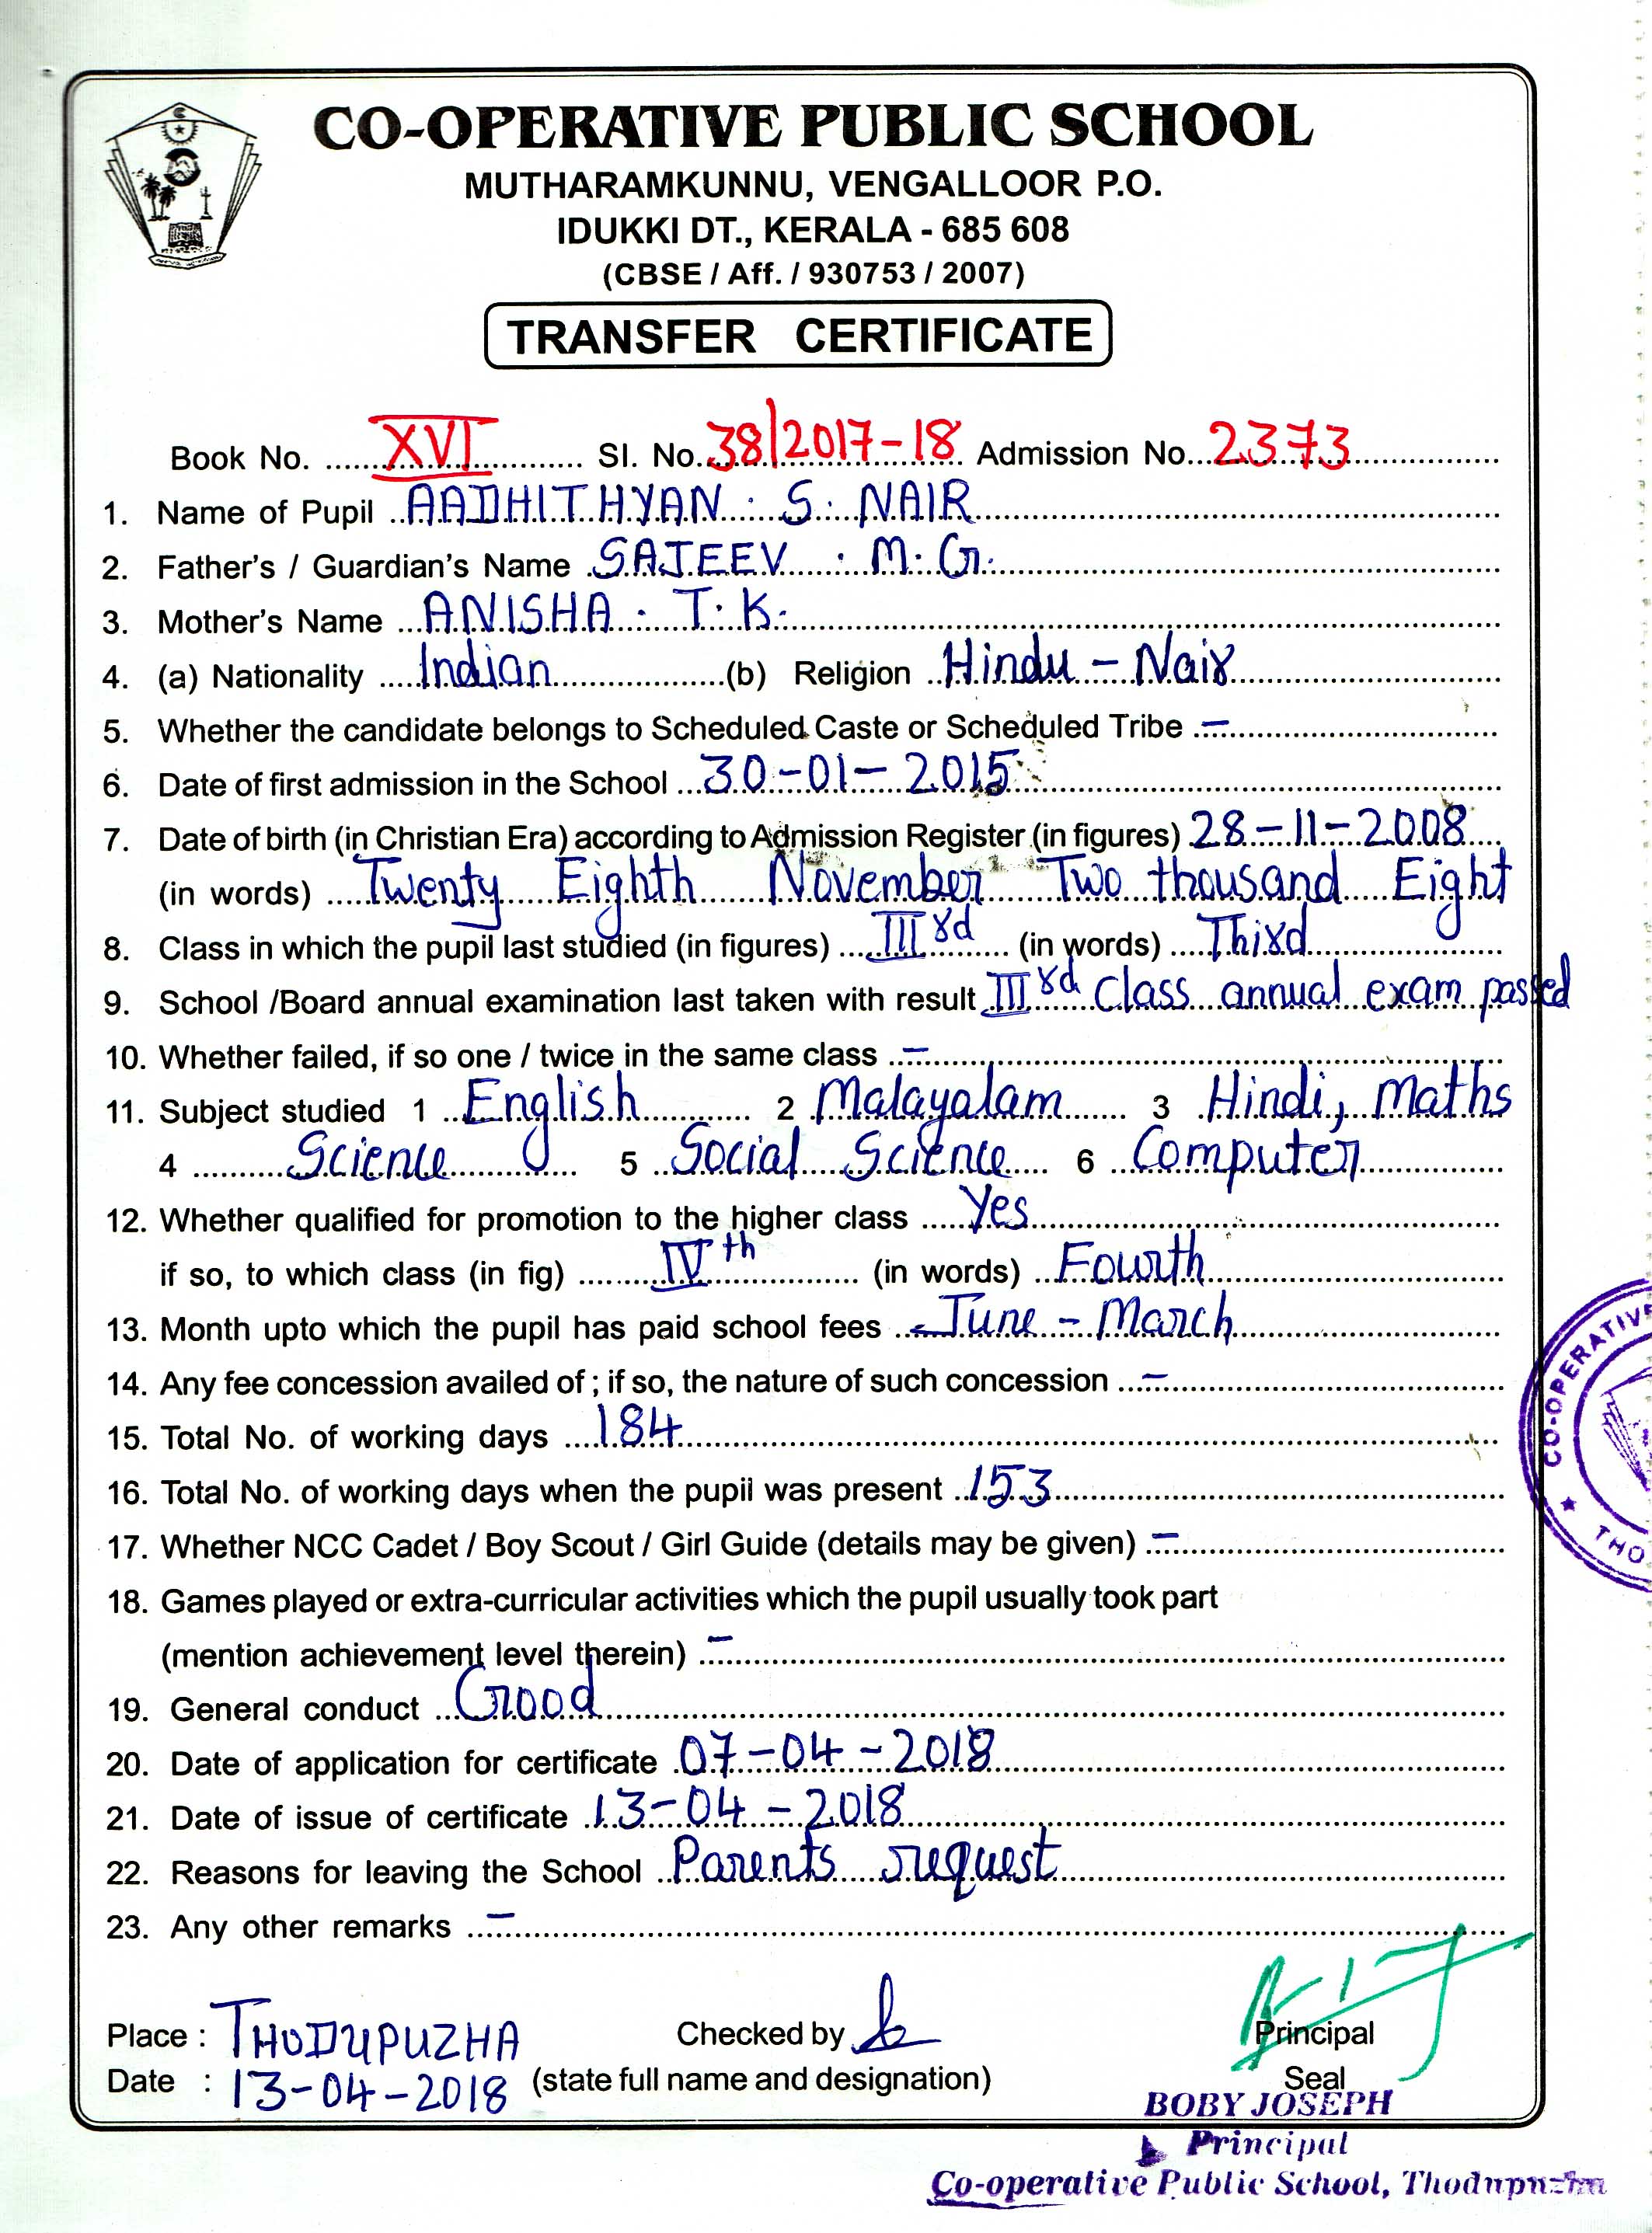 CO-OPERATIVE PUBLIC SCHOOL
MUTHARAMKUNNU, VENGALLOOR P.O.
IDUKKI DT., KERALA - 685 608
(CBSE / Aff. / 930753 / 2007)
TRANSFER CERTIFICATE
Book No. XVI Sl. No. 38/2017-18 Admission No. 2373
1. Name of Pupil AADHITHYAN . S . NAIR
2. Father's / Guardian's Name SAJEEV . M. G.
3. Mother's Name ANISHA . T. K.
4. (a) Nationality Indian (b) Religion Hindu - Nair
5. Whether the candidate belongs to Scheduled Caste or Scheduled Tribe –
6. Date of first admission in the School 30-01-2015
7. Date of birth (in Christian Era) according to Admission Register (in figures) 28-11-2008
(in words) Twenty Eighth November Two thousand Eight
8. Class in which the pupil last studied (in figures) III rd (in words) Third
9. School /Board annual examination last taken with result III rd Class annual exam passed
10. Whether failed, if so one / twice in the same class –
11. Subject studied 1 English 2 Malayalam 3 Hindi, Maths
4 Science 5 Social Science 6 Computer
12. Whether qualified for promotion to the higher class Yes
if so, to which class (in fig) IV th (in words) Fourth
13. Month upto which the pupil has paid school fees June - March
14. Any fee concession availed of ; if so, the nature of such concession –
15. Total No. of working days 184
16. Total No. of working days when the pupil was present 153
17. Whether NCC Cadet / Boy Scout / Girl Guide (details may be given) –
18. Games played or extra-curricular activities which the pupil usually took part
(mention achievement level therein) –
19. General conduct Good
20. Date of application for certificate 07-04-2018
21. Date of issue of certificate 13-04-2018
22. Reasons for leaving the School Parents request
23. Any other remarks –
Place : THODUPUZHA Checked by Principal
Date : 13-04-2018 (state full name and designation) Seal
BOBY JOSEPH
Principal
Co-operative Public School, Thodupuzha
CO-OPERATIVE
THO